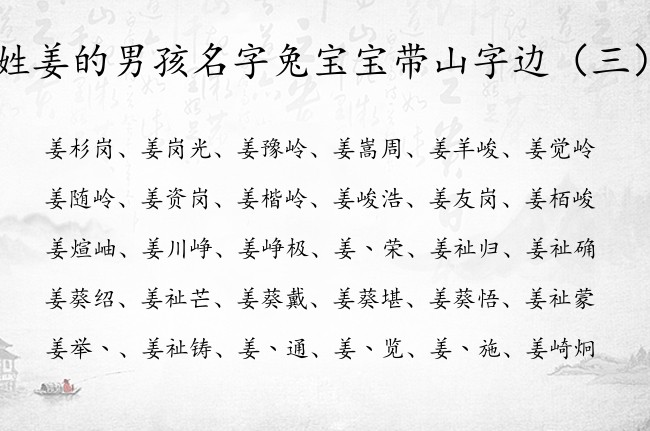 姓姜的男孩名字兔宝宝带山字边（三）
姜杉岗、姜岗光、姜豫岭、姜嵩周、姜羊峻、姜觉岭
姜随岭、姜资岗、姜楷岭、姜峻浩、姜友岗、姜栢峻
姜煊岫、姜川峥、姜峥极、姜丶荣、姜祉归、姜祉确
姜葵绍、姜祉芒、姜葵戴、姜葵堪、姜葵悟、姜祉蒙
姜举丶、姜祉铸、姜丶通、姜丶览、姜丶施、姜崎炯